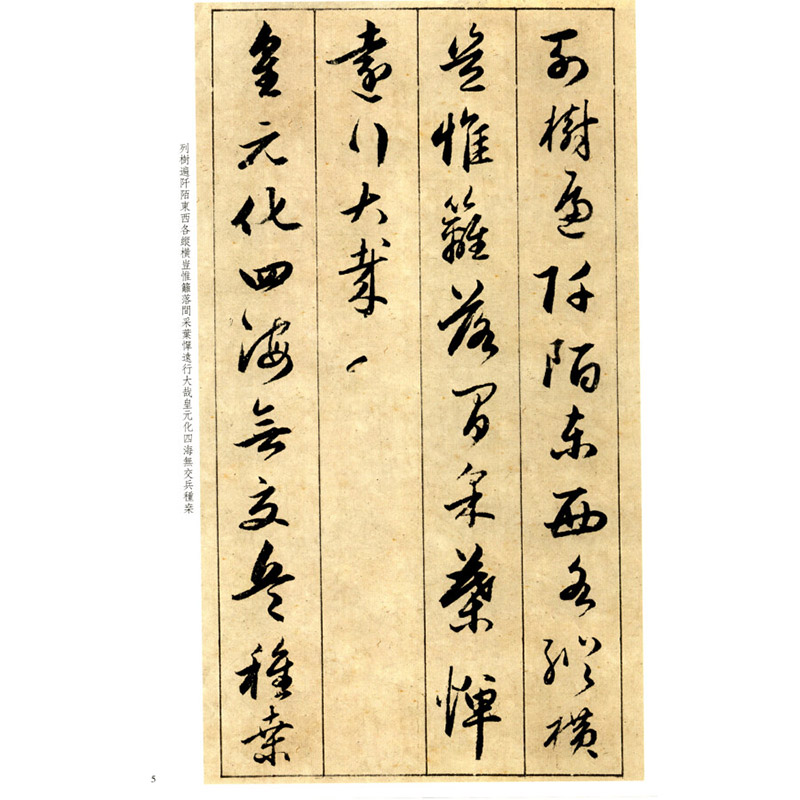 列樹遍阡陌東西各縱橫
豈惟籬落間采葉憚
遠行大哉
皇元化四海無交兵種桑
列樹遍阡陌東西各縱橫豈惟籬落間采葉憚遠行大哉皇元化四海無交兵種桒
5